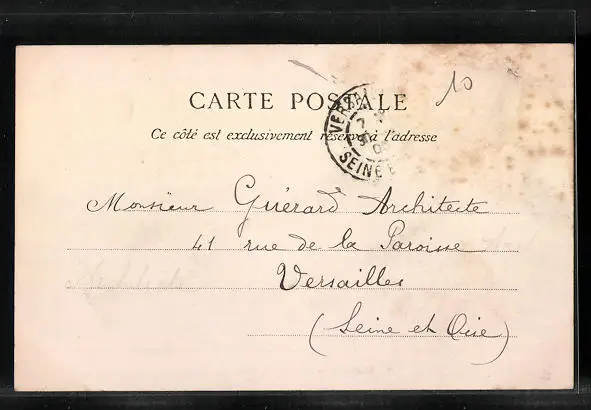 CARTE POSTALE
10
Ce côté est exclusivement réservé à l'adresse
VERSAILLES
SEINE
Monsieur Guérard Architecte
41 rue de la Paroisse
Versailles
(Seine et Oise)